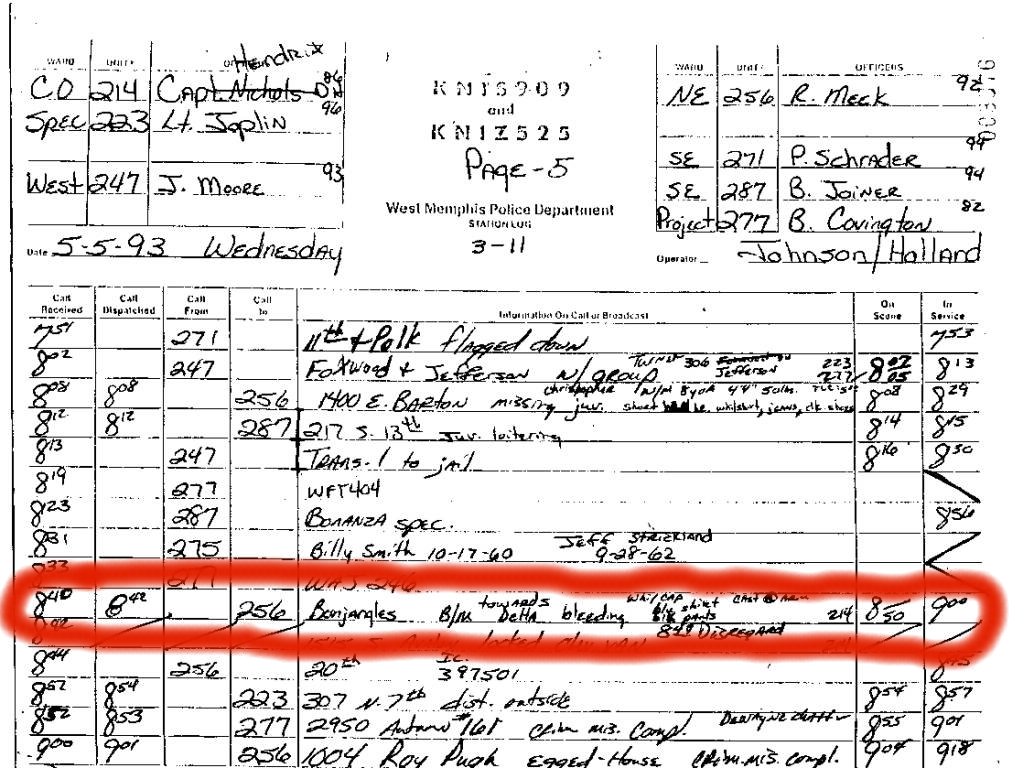 WARD UNIT# Hendrix WARD UNIT# OFFICERS
CO 214 Capt. Nichols KNIS909 NE 256 R. Meck 92
Spec 223 Lt. Joplin 96 and
KNIZ525 SE 271 P. Schrader 94
West 247 J. Moore 93 Page-5 SE 287 B. Joiner 94
West Memphis Police Department Project 277 B. Covington 82
STATION LOG
Date 5-5-93 Wednesday 3-11 Operator Johnson/Holland
Call Received Call Dispatched Call From Call to Information On Call or Broadcast On Scene In Service
751 271 11th & Polk flagged down 753
802 247 Foxwood & Jefferson w/ group 306 Jefferson 223 807 805 813
808 808 256 1400 E. Barton missing juv. christopher w/m 8yoa 44" 50lbs. 808 829
812 812 287 217 S. 13th Juv. loitering 814 815
813 247 Trans. 1 to jail 816 830
819 277 WFT404
823 287 Bonanza spec. 856
831 275 Billy Smith 10-17-60 Jeff Strickland 9-28-62
833 277
840 842 256 Bonjangles B/m towards Delta bleeding whi/cap blu shirt blk pants cast @ arm 214 850 900
842 849 Disregard
844 256 20th IC. 397501
852 854 223 307 N. 7th dist. outside 854 857
852 853 277 2950 Autumn #161 crim mis. compl. 855 901
900 901 256 1004 Roy Pugh Egged-House crim.mis. compl. 904 918